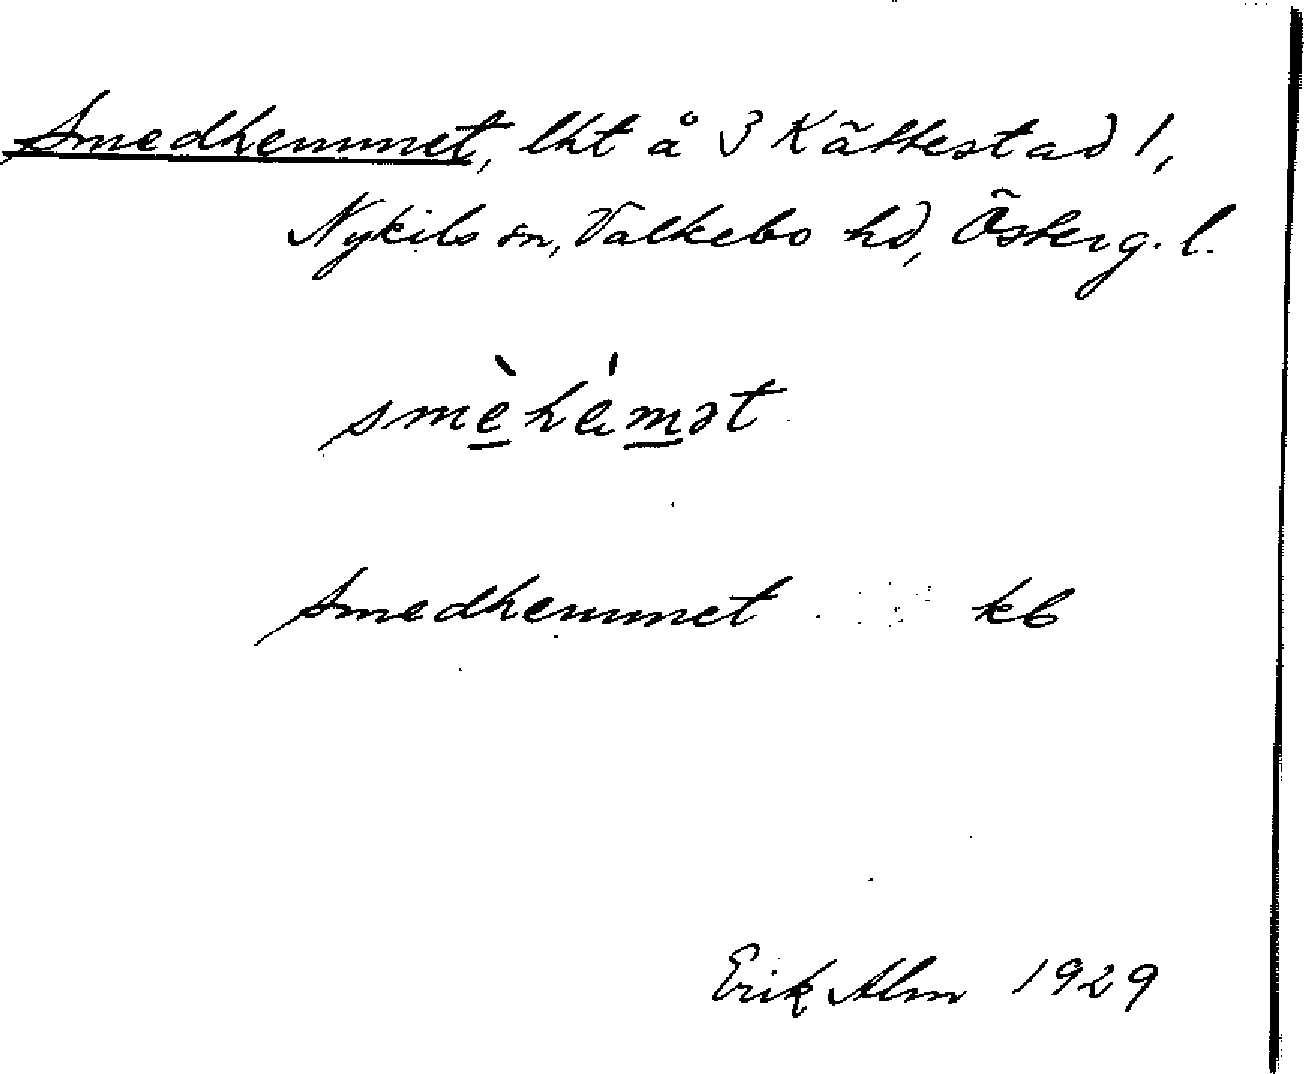 Smedhemmet, lht å 3 Kättestad 1,
Nykils sn, Valkebo hd, Österg. l.
smèhémət
Smedhemmet kb
Erik Alm 1929